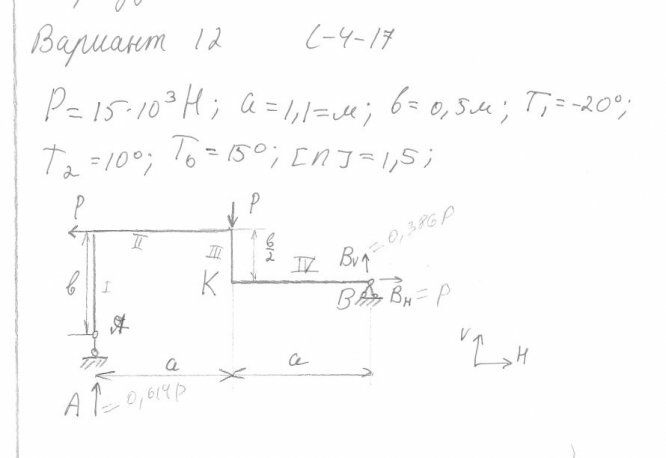 Вариант 12 С-4-17
P=15·10³Н; a=1,1=м; b=0,5м; T₁=-20°;
T₂=10°; T₀=15°; [n]=1,5;
P P
II III b/2 Bv =0,386P
b I K IV B Bн = P
A V
a a H
A =0,614P